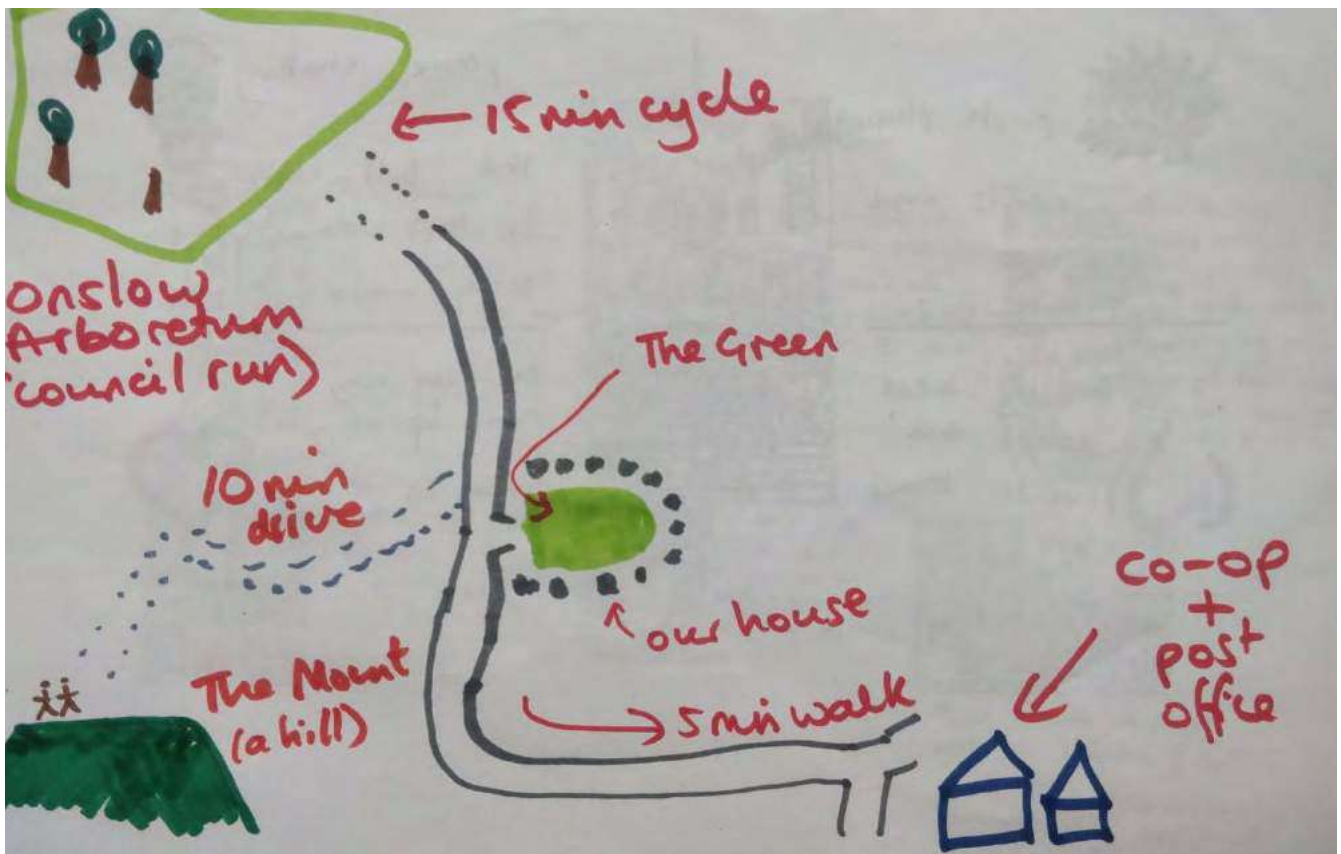 ← 15 min cycle
Onslow
Arboretum
(council run)
The Green
10 min
drive
our house
The Mount
(a hill)
5 min walk
Co-op
+
post
office